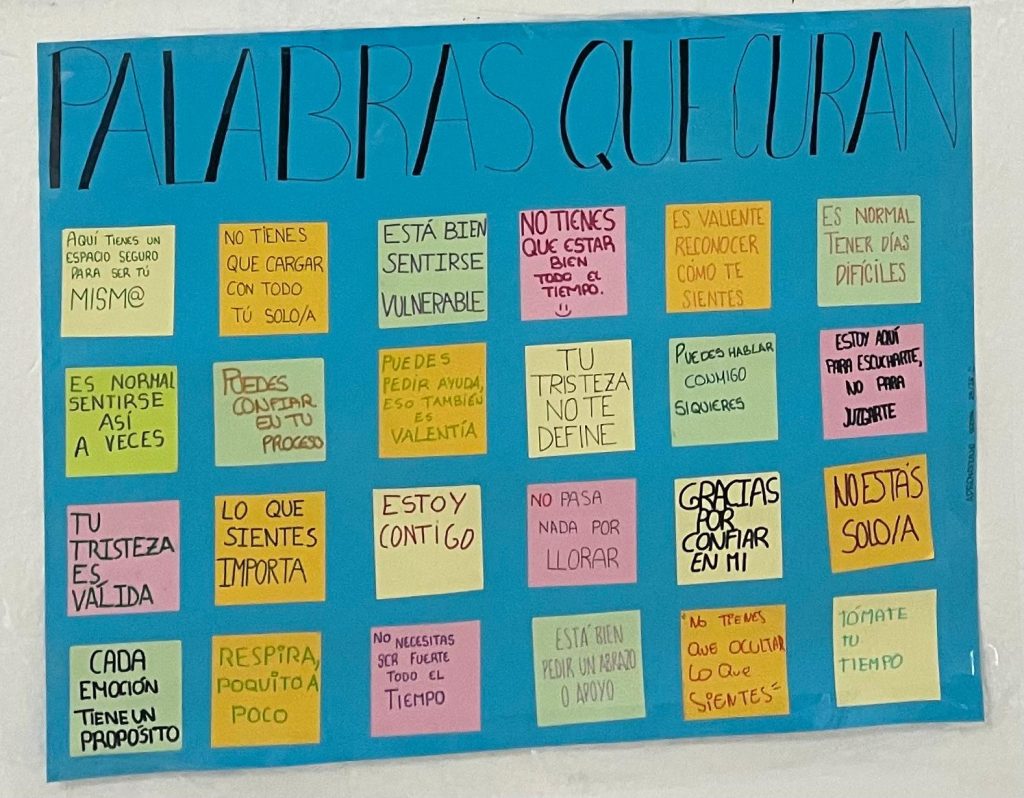 PALABRAS QUE CURAN
AQUÍ TIENES UN
ESPACIO SEGURO
PARA SER TÚ
MISM@
NO TIENES
QUE CARGAR
CON TODO
TÚ SOLO/A
ESTÁ BIEN
SENTIRSE
VULNERABLE
NO TIENES
QUE ESTAR
BIEN
TODO EL
TIEMPO.
ES VALIENTE
RECONOCER
CÓMO TE
SIENTES
ES NORMAL
TENER DÍAS
DIFÍCILES
ES NORMAL
SENTIRSE
ASÍ
A VECES
PUEDES
CONFIAR
EN TU
PROCESO
PUEDES
PEDIR AYUDA,
ESO TAMBIÉN
ES
VALENTÍA
TU
TRISTEZA
NO TE
DEFINE
PUEDES HABLAR
CONMIGO
SI QUIERES
ESTOY AQUÍ
PARA ESCUCHARTE,
NO PARA
JUZGARTE
TU
TRISTEZA
ES
VÁLIDA
LO QUE
SIENTES
IMPORTA
ESTOY
CONTIGO
NO PASA
NADA POR
LLORAR
GRACIAS
POR
CONFIAR
EN MI
NO ESTÁS
SOLO/A
CADA
EMOCIÓN
TIENE UN
PROPÓSITO
RESPIRA,
POQUITO A
POCO
NO NECESITAS
SER FUERTE
TODO EL
TIEMPO
ESTÁ BIEN
PEDIR UN ABRAZO
O APOYO
"NO TIENES
QUE OCULTAR
LO QUE
SIENTES"
TÓMATE
TU
TIEMPO